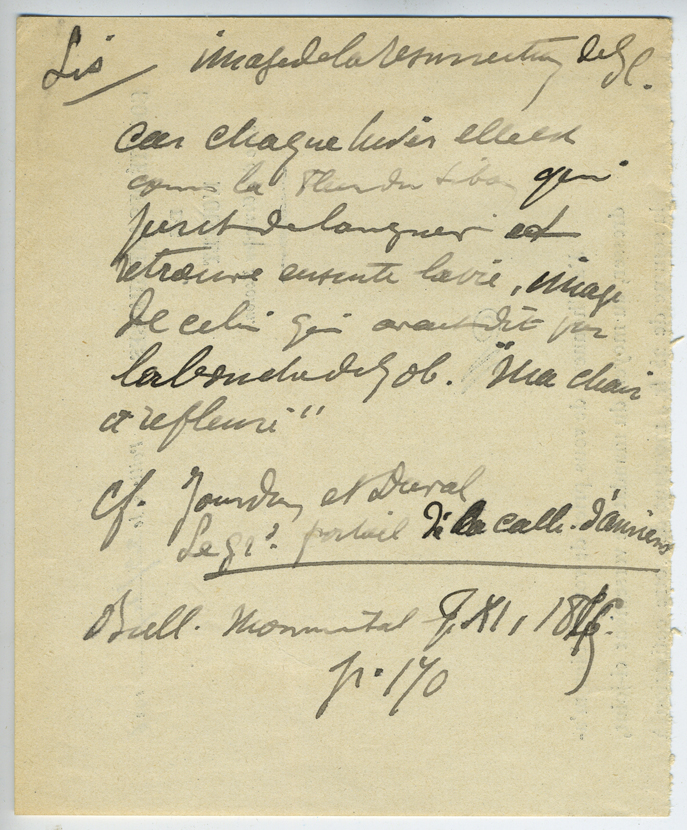 Lis image de la résurrection de J.C.
car chaque hiver elle est
comme la fleur du qui
perit de langueur et
retrouve ensuite la vie, image
de celui qui avait dit par
la bouche de Job. "Ma chair
a refleuri"
cf. Jourdain et Duval
Le gr^d. portail de la cath. d'amiens
Bull. Monumental T. XI, 
p. 170